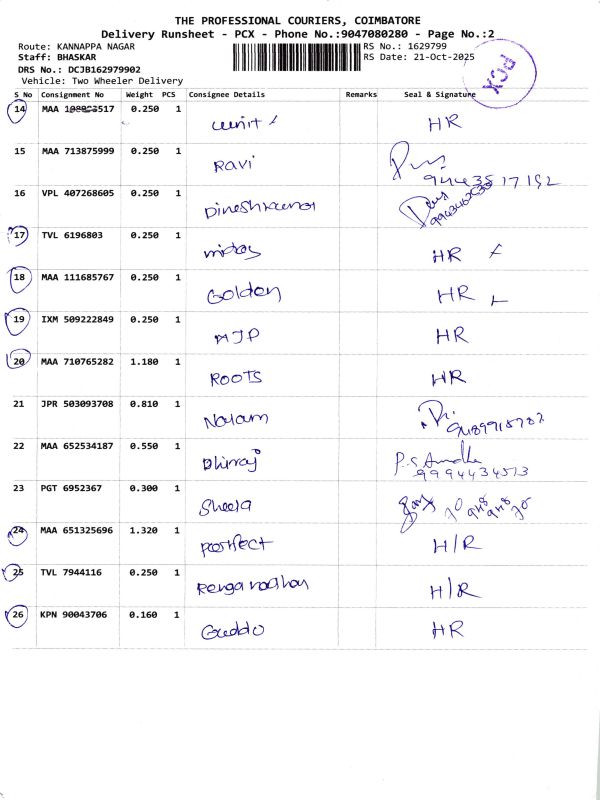 THE PROFESSIONAL COURIERS, COIMBATORE
Delivery Runsheet - PCX - Phone No.:9047080280 - Page No.:2
Route: KANNAPPA NAGAR RS No.: 1629799
Staff: BHASKAR RS Date: 21-Oct-2025
DRS No.: DCJB162979902
Vehicle: Two Wheeler Delivery
PCX
S No Consignment No Weight PCS Consignee Details Remarks Seal & Signature
14 MAA 517 0.250 1 HR
15 MAA 713875999 0.250 1 Ravi
16 VPL 407268605 0.250 1 Dineshkumar
17 TVL 6196803 0.250 1 HR
18 MAA 111685767 0.250 1 Golden HR
19 IXM 509222849 0.250 1 HR
20 MAA 710765282 1.180 1 ROOTS HR
21 JPR 503093708 0.810 1
22 MAA 652534187 0.550 1 Dhiraj 9994434513
23 PGT 6952367 0.300 1 Sheela
24 MAA 651325696 1.320 1 perfect H/R
25 TVL 7944116 0.250 1 H/R
26 KPN 90043706 0.160 1 Guddo HR